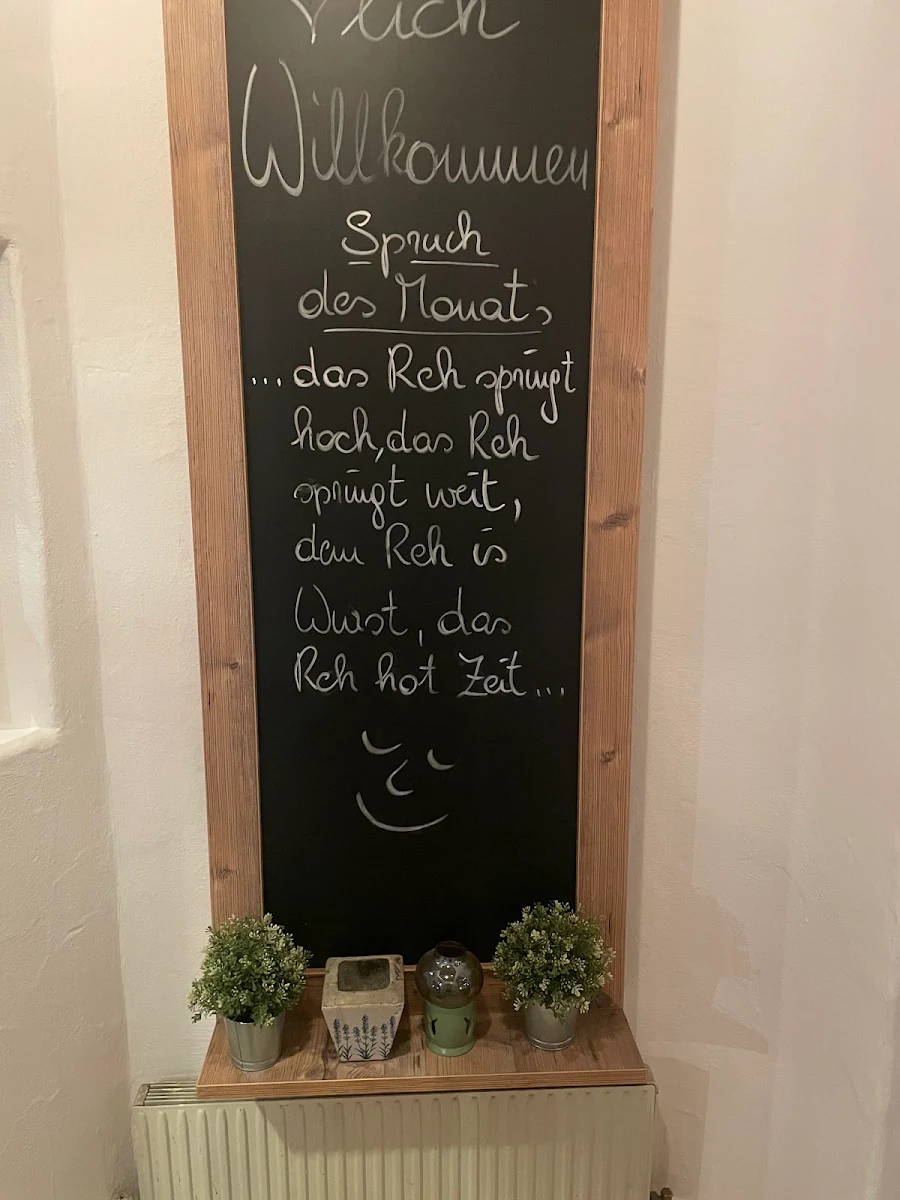 lich
Willkommen
Spruch
des Monats
...das Reh springt
hoch, das Reh
springt weit,
dem Reh is
Wurst, das
Reh hot Zeit...